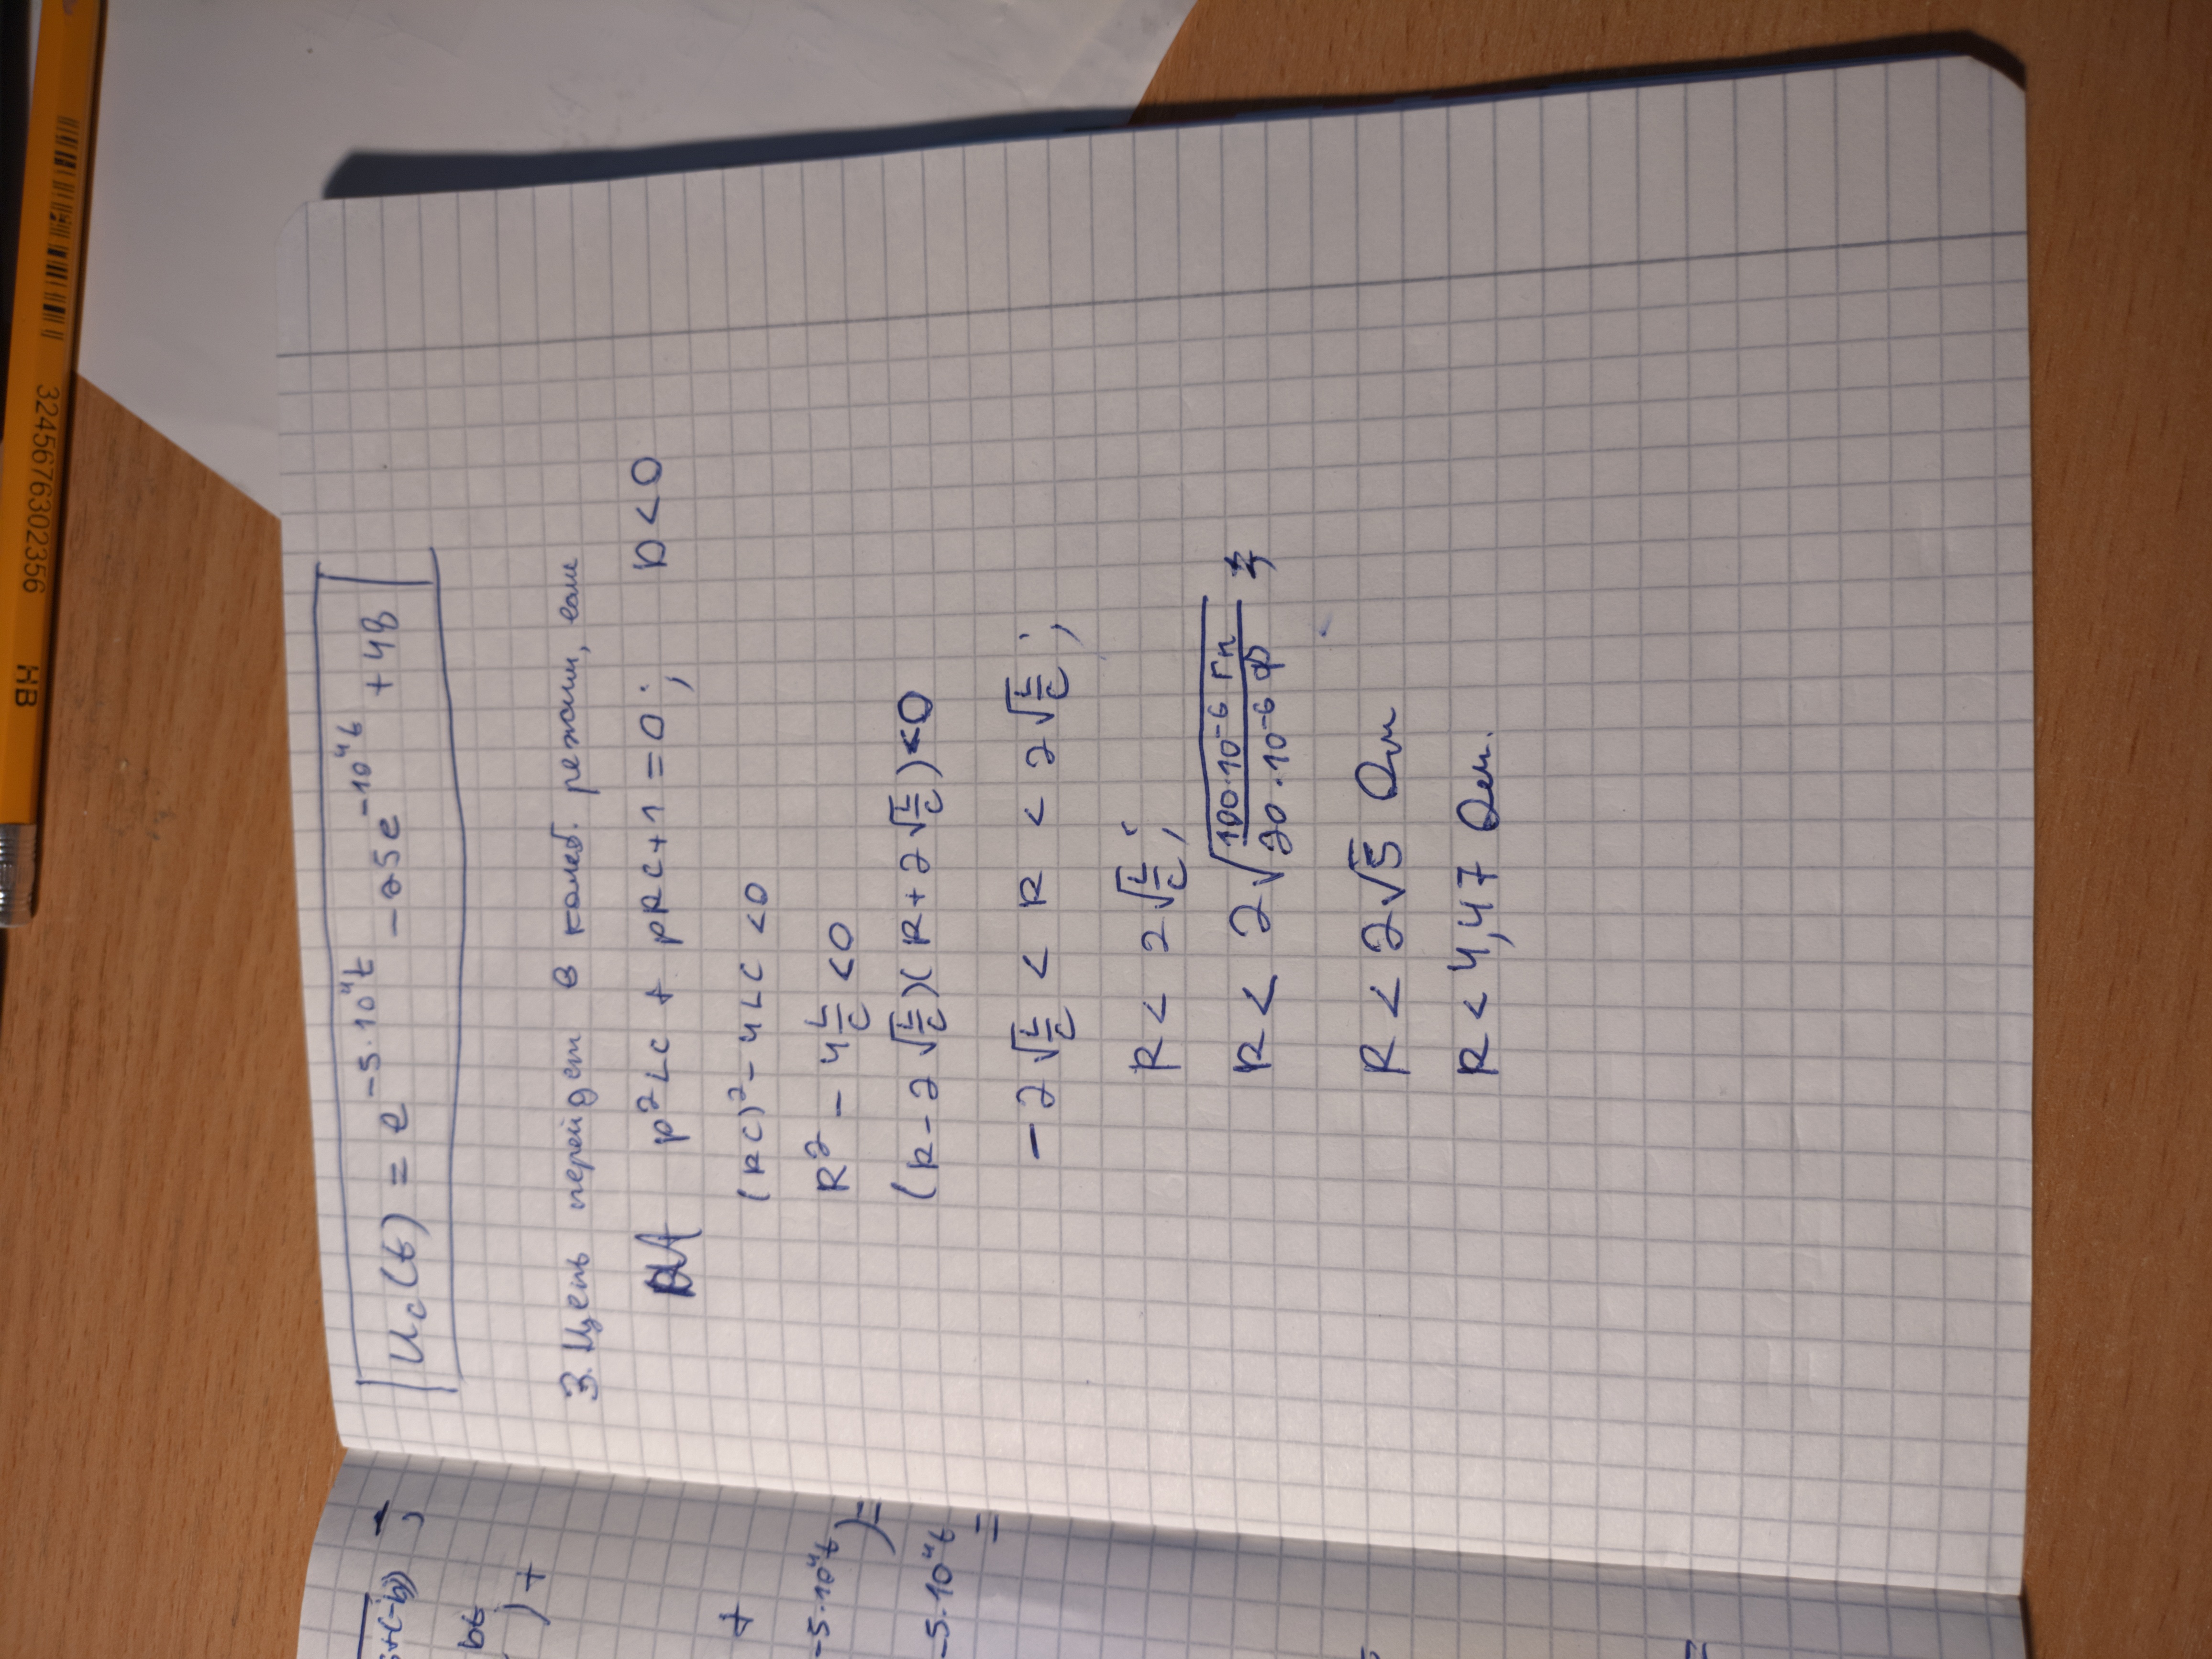 HB 3245676302356
s+(-b)) ;
bt
) +
+
-5·10⁴t
) =
-5·10⁴t
=
=
u_c(t) = e^{-5·10⁴t} - 25e^{-10⁴t} + 48
3. Цепь перейдет в колеб. режим, если
p²LC + pRC + 1 = 0; D < 0
(RC)² - 4LC < 0
R² - 4 L/C < 0
(R - 2√(L/C))(R + 2√(L/C)) < 0
-2√(L/C) < R < 2√(L/C);
R < 2√(L/C);
R < 2√(100·10⁻⁶ Гн / 20·10⁻⁶ Ф)
R < 2√5 Ом
R < 4,47 Ом.